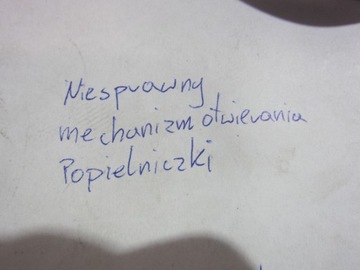 Niesprawny
mechanizm otwierania
Popielniczki